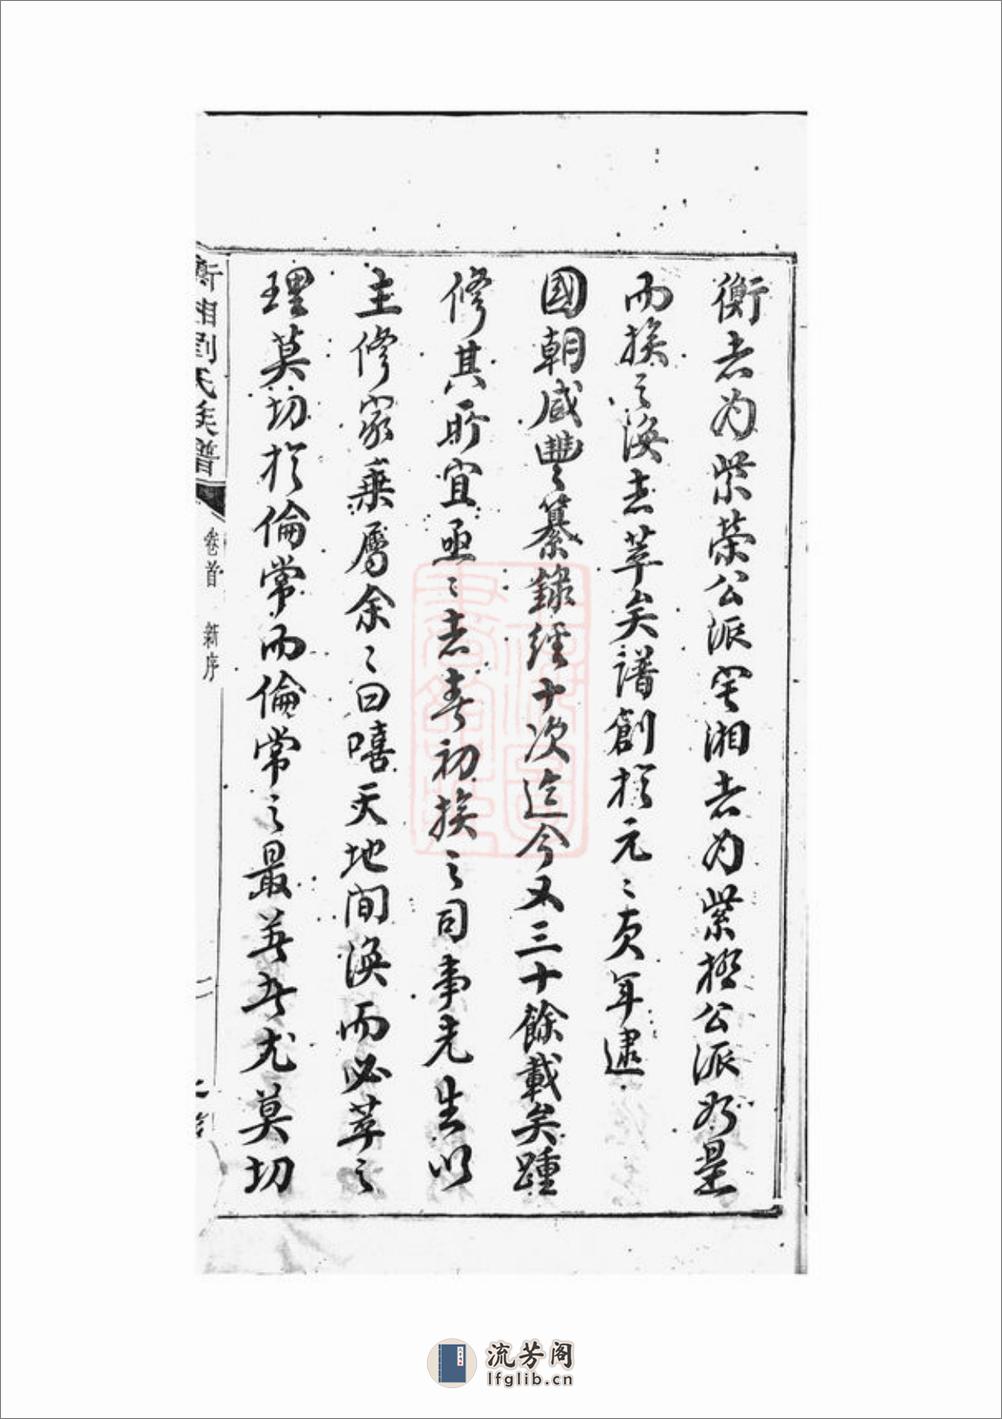 衡者为紫荣公派宅湘者为紫極公派於是
而族之渙者萃矣譜創於元之貞年逮
國朝咸豐纂錄經十次迄今又三十餘載矣踵
修其所宜亟〻者春初族之司事先生以
主修家乘屬余〻曰嘻天地間渙而必萃之
理莫切於倫常而倫常之最美者尤莫切
衡湘劉氏族譜
卷首 新序
二
流芳阁
lfglib.cn